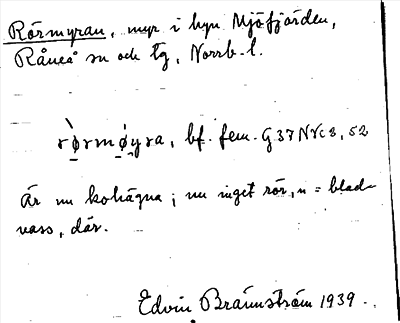 Rörmyran, myr i byn Mjöfjärden,
Råneå sn och tg, Norrb. l.
rò̤rmǿ̤yra, bf. fem. G 37 N v c 2, 52
Är nu kohägna; nu inget rör, n = blad-
vass, där.
Edvin Brännström 1939.